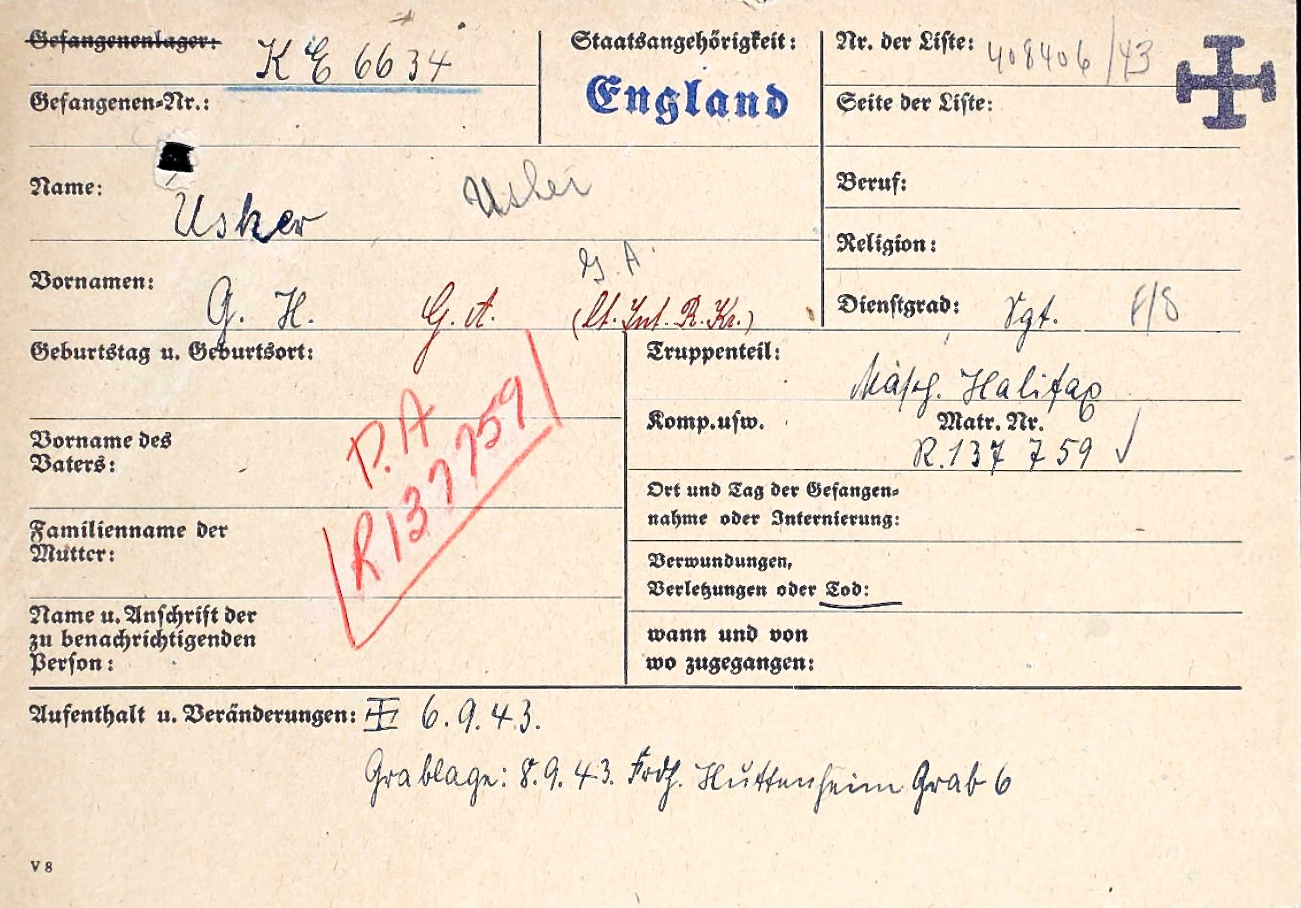 Gefangenenlager:
KE 6634
Gefangenen-Nr.:
Staatsangehörigkeit:
England
Nr. der Liste: 408406/43
Seite der Liste:
Name:
Usker
Usher
Beruf:
Religion:
Vornamen:
G. A.
G. H. G. A. (lt. Int. R. Kr.)
Dienstgrad: Sgt. F/S
Geburtstag u. Geburtsort:
Truppenteil:
Masch. Halifax
Komp.usw. Matr. Nr.
R.137 759
P.A
R137759
Vorname des
Vaters:
Ort und Tag der Gefangen-
nahme oder Internierung:
Familienname der
Mutter:
Verwundungen,
Verletzungen oder Tod:
Name u. Anschrift der
zu benachrichtigenden
Person:
wann und von
wo zugegangen:
Aufenthalt u. Veränderungen: 6.9.43.
Grablage: 8.9.43. Frdh. Huttenheim Grab 6
V 8